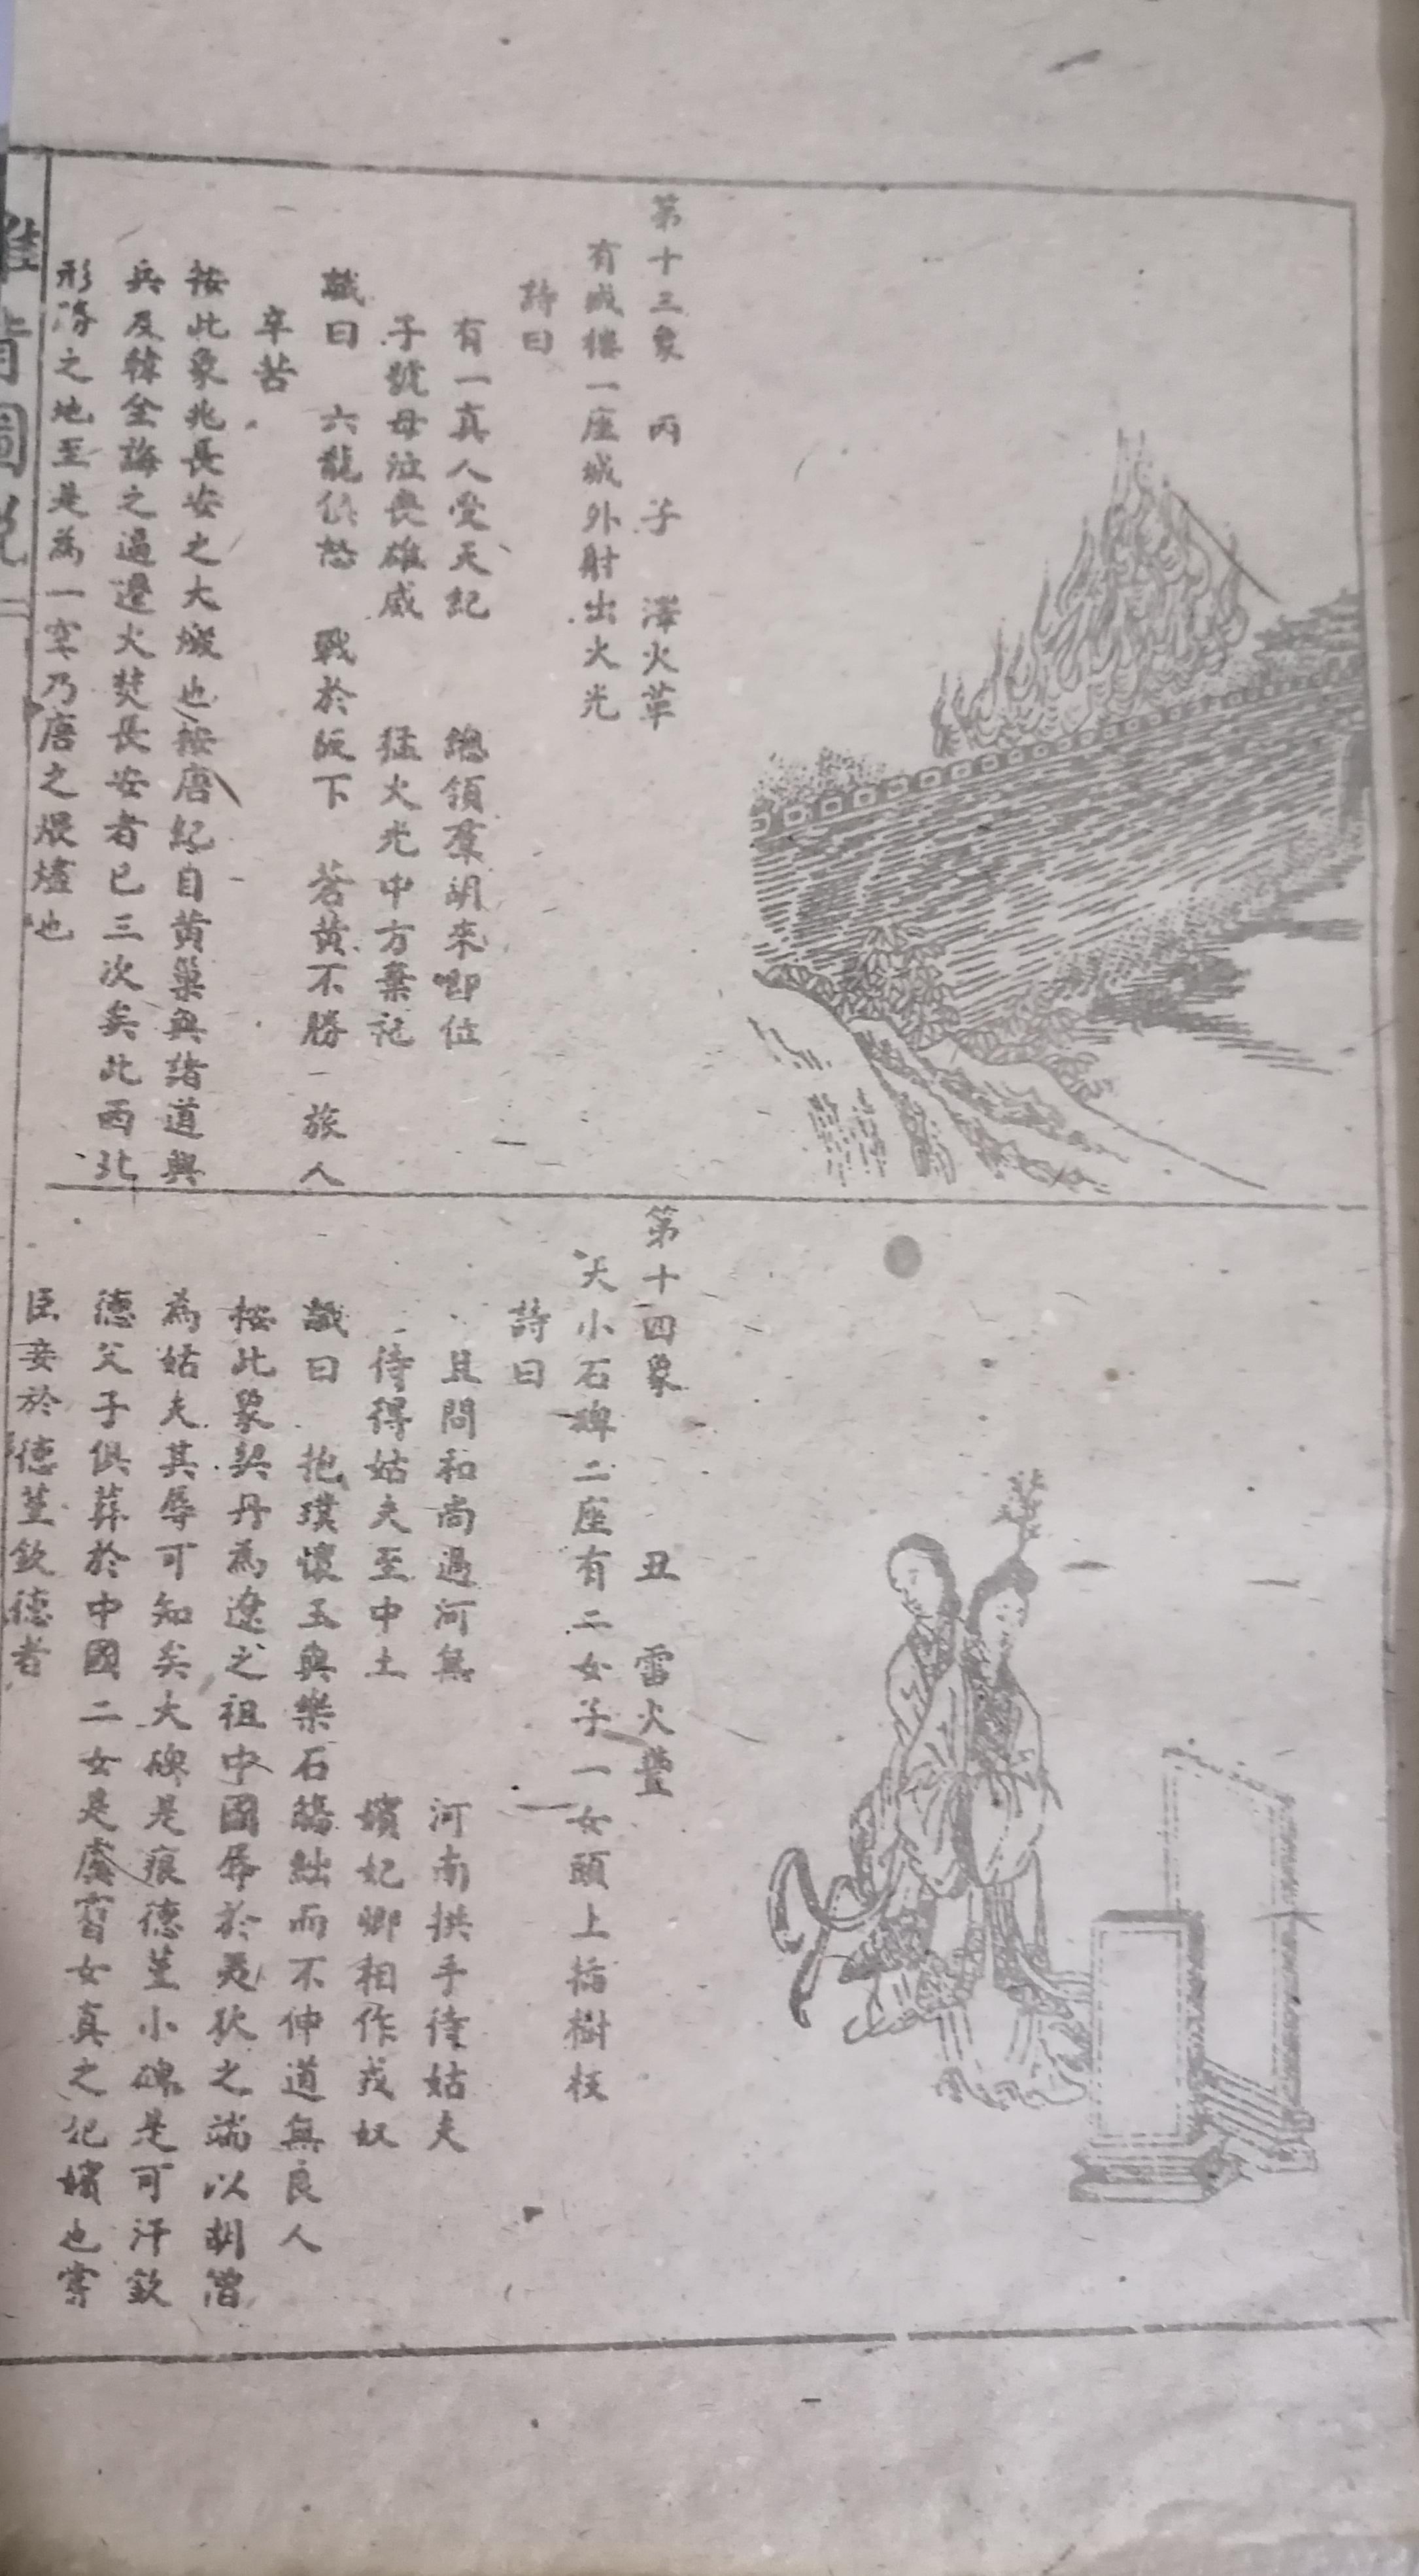 第十三象 丙 子 澤火革
有城樓一座城外射出火光
詩曰
有一真人受天紀 總領羣胡來卽位
子號母泣喪雄威 猛火光中方棄記
讖曰 六龍俱愁 戰於阪下 蒼黃不勝 旅人
卒苦
按此象兆長安之大燬也按唐紀自黃巢與諸道興
兵及韓全誨之逼遷火焚長安者已三次矣此西北
形勝之地至是爲一空乃唐之煨燼也
推背圖說 二
第十四象 丑 雷火豐
大小石碑二座有二女子一女頭上插樹枝
詩曰
且問和尚過河無 河南拱手待姑夫
待得姑夫至中土 嬪妃卿相作戎奴
讖曰 抱璞懷玉與樂石 而不伸道無良人
按此象契丹爲遼之祖中國辱於夷狄之端以胡僧
爲姑夫其辱可知矣大碑是痕德堇小碑是可汗欽
德父子俱葬於中國二女是 女真之妃嬪也寄
臣妾於德堇欽德者